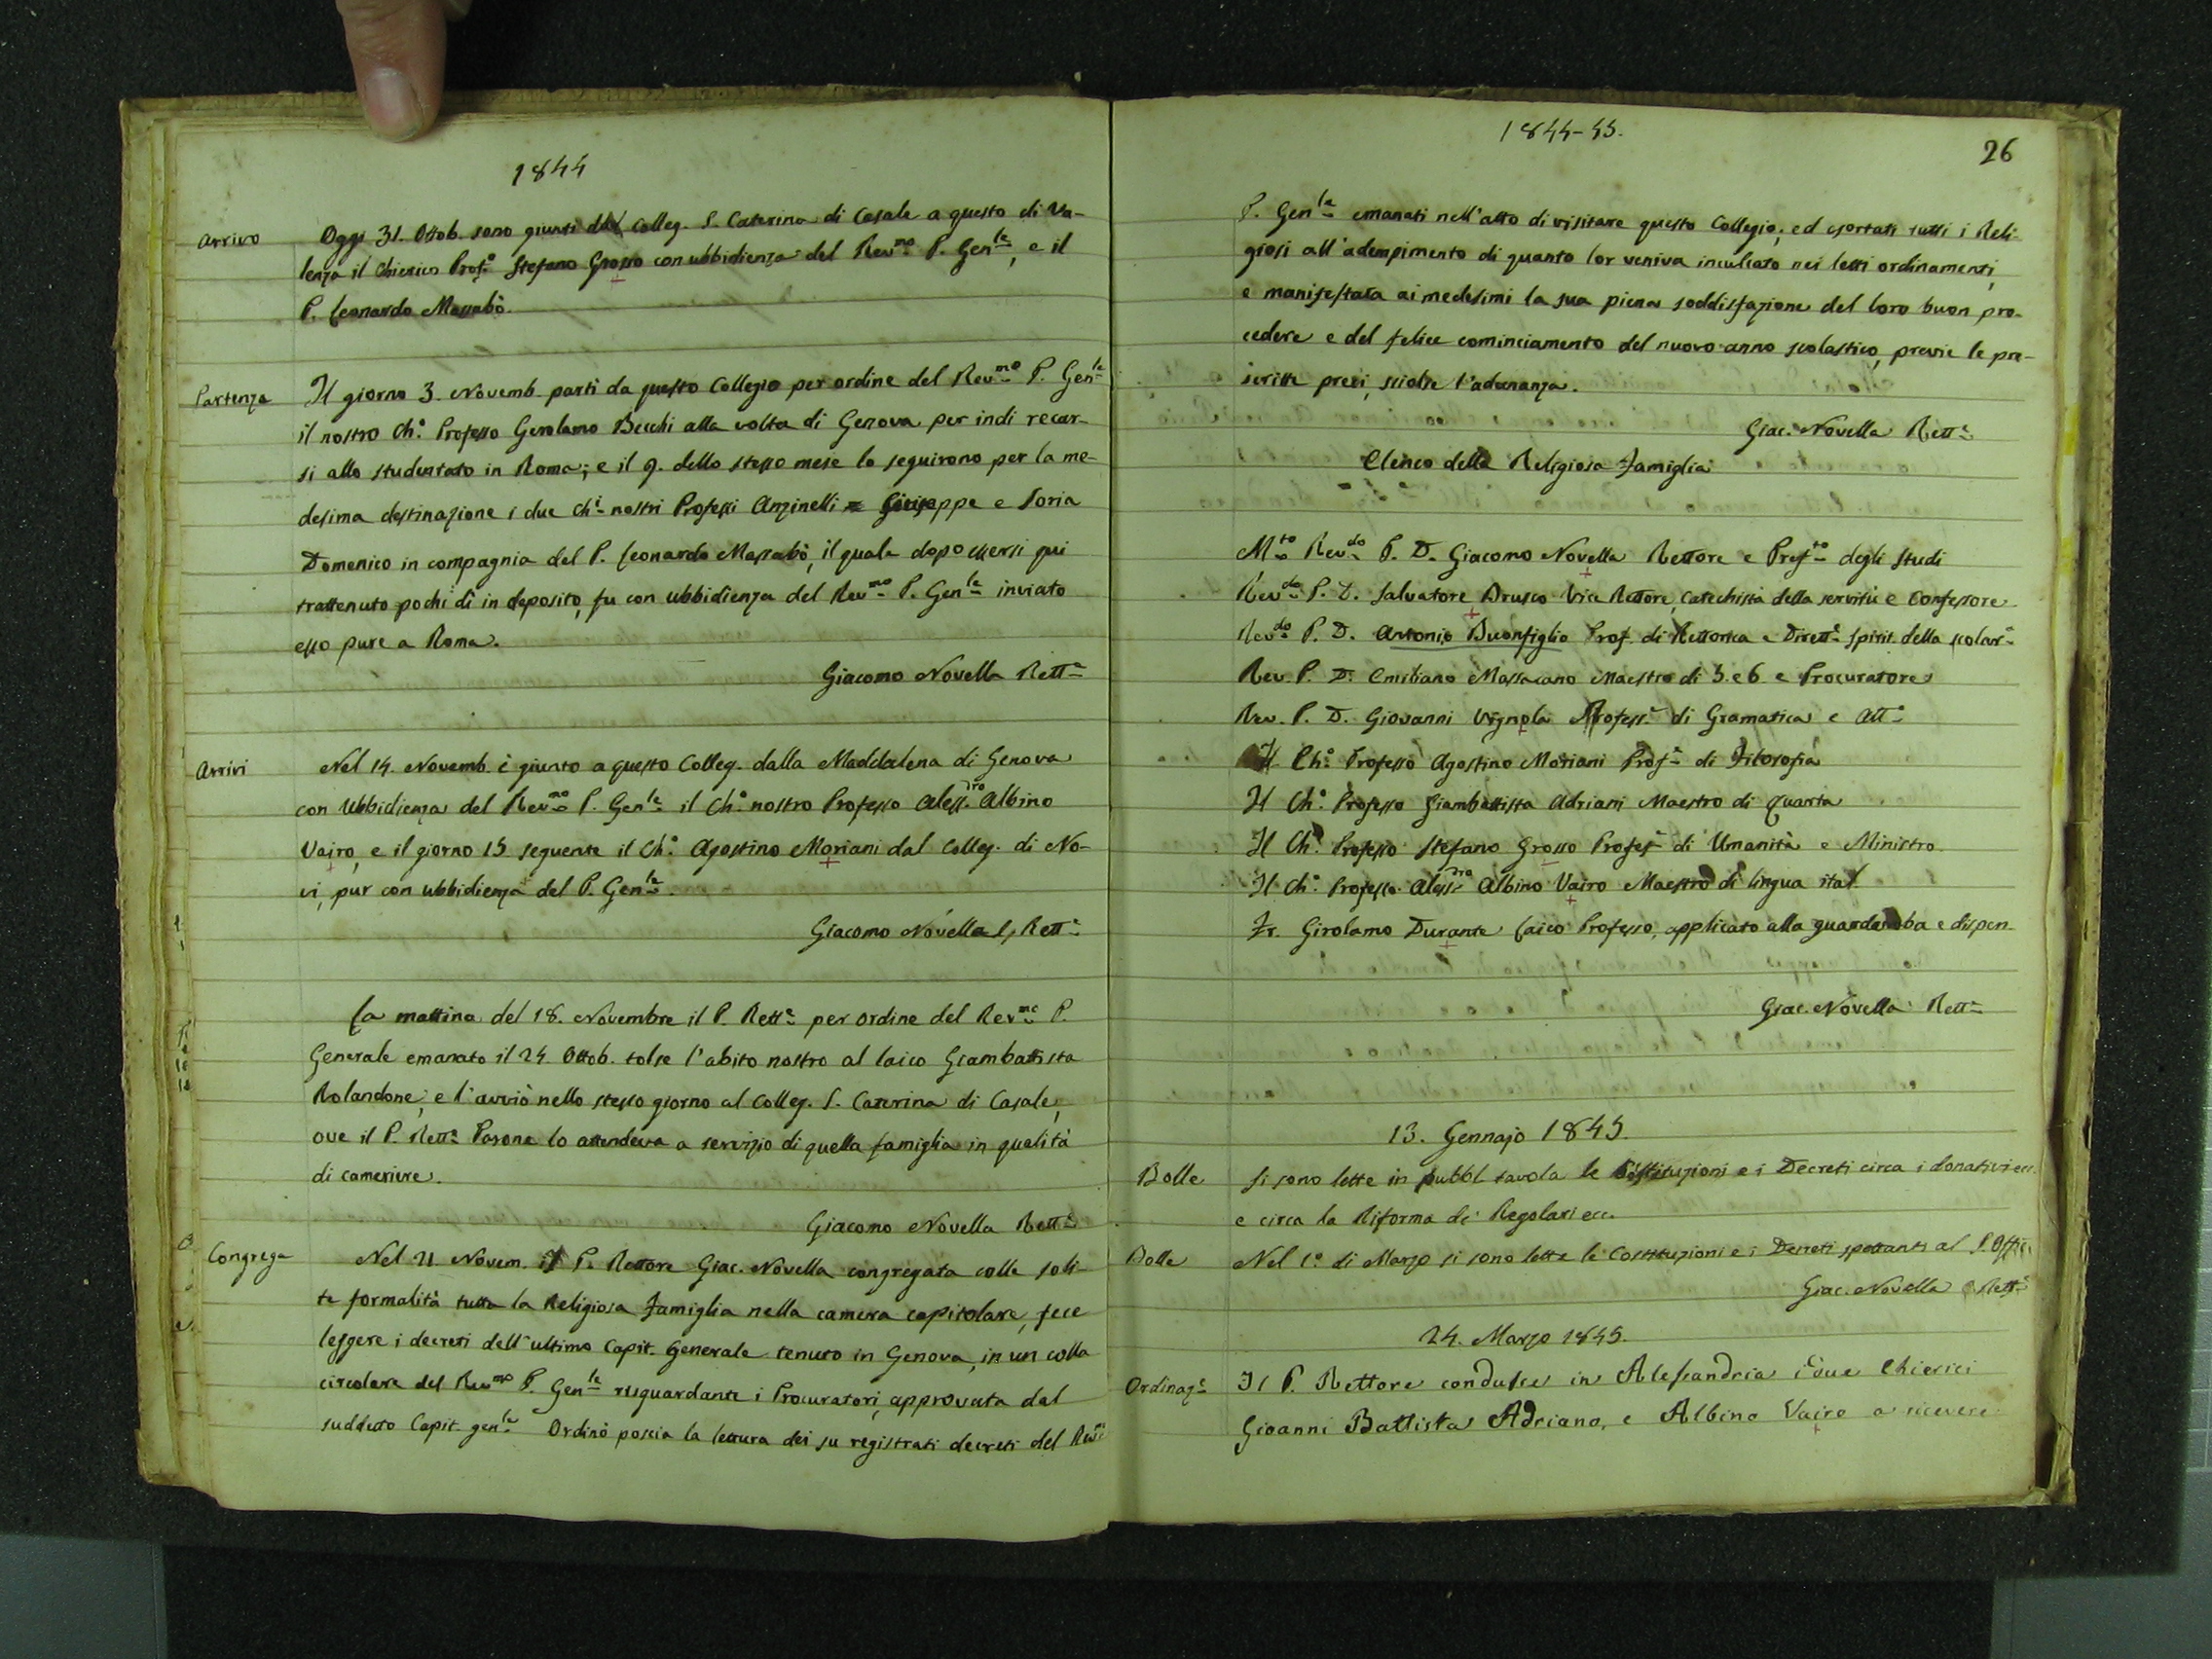 1844
Arrivo
Oggi 31. Ottob. sono giunti dal Colleg. S. Caterina di Casale a questo di Va-
lenza il Chierico Prof.º Stefano Grosso con ubbidienza del Rev.mo P. Gen.le, e il
P. Leonardo Massabò.
Partenza
Il giorno 3. Novemb. partì da questo Collegio per ordine del Rev.mo P. Gen.le
il nostro Ch.º Professo Gerolamo Becchi alla volta di Genova per indi recar-
si allo studentato in Roma; e il 9. dello stesso mese lo seguirono per la me-
desima destinazione i due Ch.i nostri Professi Anzinelli Giuseppe e Soria
Domenico in compagnia del P. Leonardo Massabò, il quale dopo essersi qui
trattenuto pochi dì in deposito, fu con ubbidienza del Rev.mo P. Gen.le inviato
esso pure a Roma.
Giacomo Novella Rett.e
Arrivi
Nel 14. Novemb. è giunto a questo Colleg. dalla Maddalena di Genova
con Ubbidienza del Rev.mo P. Gen.le il Ch.º nostro Professo Aless.dro Albino
Vairo, e il giorno 15 seguente il Ch.º Agostino Moriani dal Colleg. di No-
vi, pur con ubbidienza del P. Gen.le.
Giacomo Novella Rett.e
La mattina del 18. Novembre il P. Rett.e per ordine del Rev.mo P.
Generale emanato il 24. Ottob. tolse l'abito nostro al laico Giambattista
Rolandone, e l'avviò nello stesso giorno al Colleg. S. Caterina di Casale,
ove il P. Rett.e Pasone lo attendeva a servizio di quella famiglia in qualità
di cameriere.
Giacomo Novella Rett.e
Congrega
Nel 21 Novem. il P. Rettore Giac. Novella congregata colle soli-
te formalità tutta la Religiosa Famiglia nella camera capitolare, fece
leggere i decreti dell'ultimo Capit. Generale tenuto in Genova, in un colla
circolare del Rev.mo P. Gen.le risguardante i Procuratori, approvata dal
suddetto Capit. gen.le Ordinò poscia la lettura dei su registrati decreti del Rev.mo
1844-45.
26
P. Gen.le emanati nell'atto di visitare questo Collegio, ed esortati tutti i Reli-
giosi all'adempimento di quanto lor veniva inculcato nei letti ordinamenti,
e manifestata ai medesimi la sua piena soddisfazione del loro buon pro-
cedere e del felice cominciamento del nuovo anno scolastico, previe le pre-
scritte preci, sciolse l'adunanza.
Giac. Novella Rett.e
Elenco della Religiosa Famiglia
M.to Rev.do P. D. Giacomo Novella Rettore e Pref.to degli Studi
Rev.do P. D. Salvatore Drusco Vice Rettore, Catechista della servitù e Confessore
Rev.do P. D. Antonio Buonfiglio Prof. di Rettorica e Dirett.e Spirit. della scolar.a
Rev. P. D. Emiliano Massacano Maestro di 5. e 6. e Procuratore
Rev. P. D. Giovanni Vignola Profess.e di Gramatica e Att.e
Il Ch.º Professo Agostino Moriani Prof.e di Filosofia
Il Ch.º Professo Giambattista Adriani Maestro di Quarta
Il Ch.º Professo Stefano Grosso Profes.e di Umanità e Ministro
Il Ch.º Professo Aless.dro Albino Vairo Maestro di lingua ital.
Fr. Girolamo Durante Laico Professo, applicato alla guardaroba e dispen.
Giac. Novella Rett.e
13. Gennajo 1845.
Bolle
Si sono lette in pubbl. tavola le Costituzioni e i Decreti circa i donativi ecc.
e circa la Riforma de' Regolari ecc.
Bolle
Nel 1.º di Marzo si sono lette le Costituzioni e i Decreti spettanti al S. Offic.
Giac. Novella Rett.e
24. Marzo 1845.
Ordinaz.e
Il P. Rettore condusse in Alessandria i due Chierici
Gioanni Battista Adriano, e Albino Vairo a ricevere